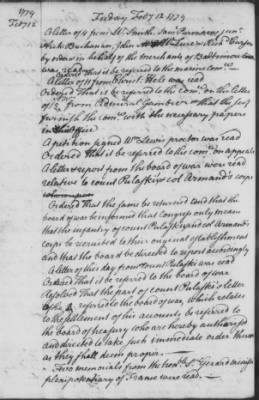 1779
Feb 12
Friday Feb 12 1779
A letter of 4 from Wm Smith, Sam Purviance junr
Arch Buchanan, John
by order in behalf of the merchants of Baltimore town
was read
Ordered that it be referred to the marine comee
A letter of 11 from was read
Ordered That it be referred to the Come on the letter
of 12 from Admiral Gambier & that the
furnish the come with the necessary papers
in the office
A petition signed Wm Lewis proctor was read
Ordered that it be referred to the come on appeals
A letter & report from the board of war were read
relative to count Pulaski's & col Armand's corps
Ordered That the same be returned and that the
board of war be informed that Congress only mean
that the infantry of count Pulaski and col Armand's
corps be recruited to their original establishment
and that the board be directed to report accordingly
A letter of this day from count Pulaski was read
Ordered That it be referred to the board of war
Resolved That the part of count Pulaski's letter
referred to the board of war, which relates
to the settlement of his accounts be referred to
the board of treasury who are hereby authorised
and directed to take such immediate order thereon
as they shall deem proper.
Two memorials from the honble Sr Gerard minister
plenipotentiary of France were read.